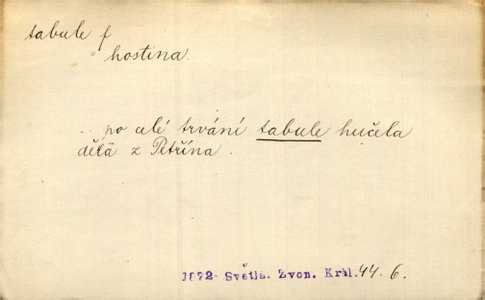 tabule f
= hostina.
.. po celé trvání tabule hučela
děla z Petřína.
1872 Světlá. Zvon. Král. 44. 6.